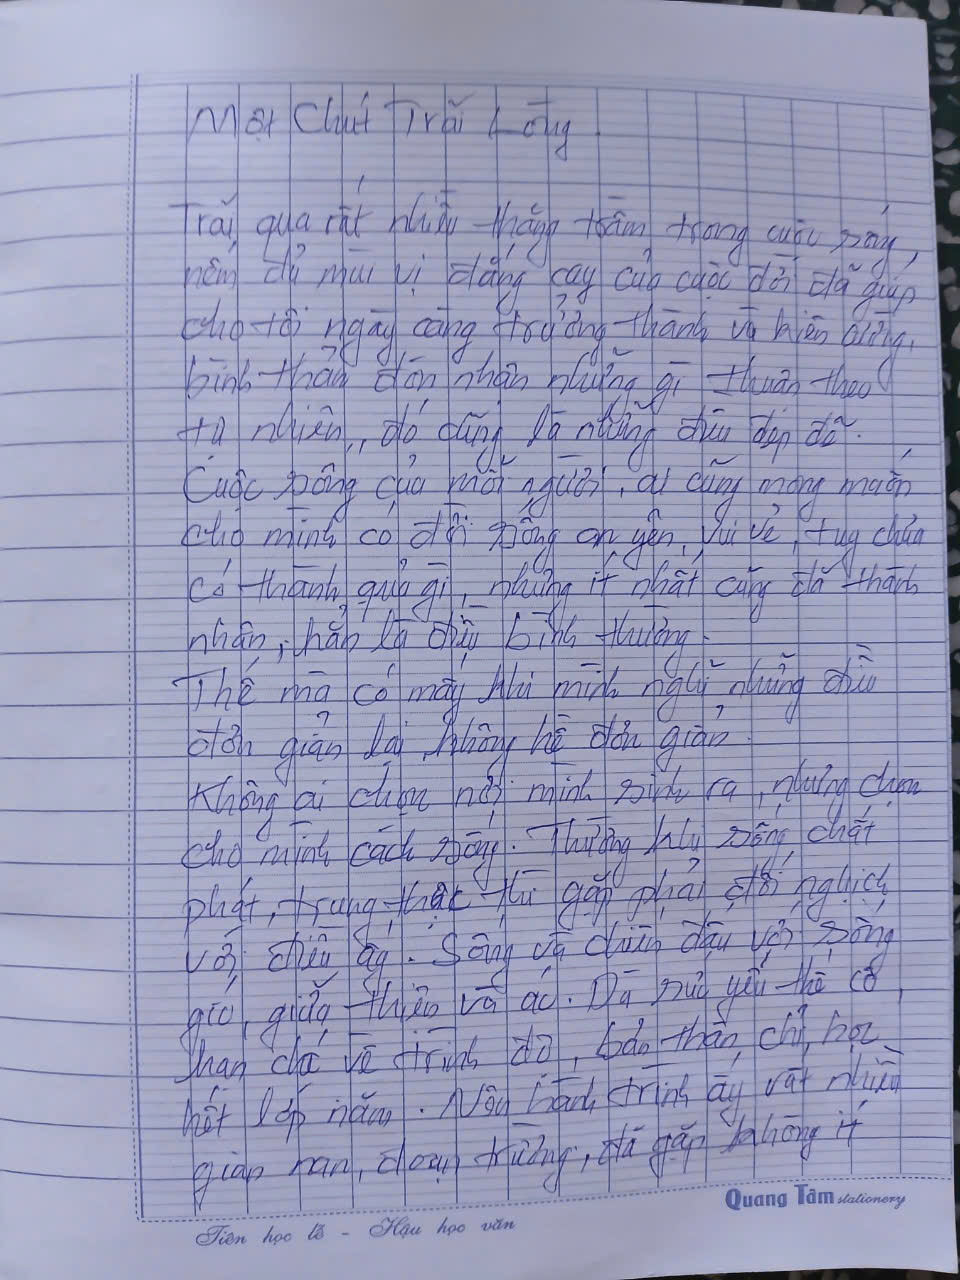 Một Chút Trãi Lòng
Trãi qua rất nhiều thăng trầm trong cuộc sống,
nếm đủ mùi vị đắng cay của cuộc đời đã giúp
cho tôi ngày càng trưởng thành và kiên cường,
bình thản đón nhận những gì thuận theo
tự nhiên, đó cũng là những điều đẹp đẽ.
Cuộc sống của mỗi người, ai cũng mong muốn
cho mình có đời sống an yên, vui vẻ, tuy chưa
có thành quả gì, nhưng ít nhất cũng đã thành
nhân, hẳn là điều bình thường.
Thế mà có mấy khi mình nghĩ những điều
đơn giản lại không hề đơn giản.
Không ai chọn nơi mình sinh ra, nhưng chọn
cho mình cách sống. Thường khi sống chất
phát, trung thực thì gặp phải đối nghịch
với điều ấy. Sống và chiến đấu với sóng
gió, giữa thiện và ác. Dù sức yếu thế cô,
hạn chế về trình độ, bản thân chỉ học
hết lớp năm. Nên hành trình ấy vất nhiều
gian nan, đoạn trường, đã gặp không ít
Quang Tâm stationery
Tiên học lễ - Hậu học văn